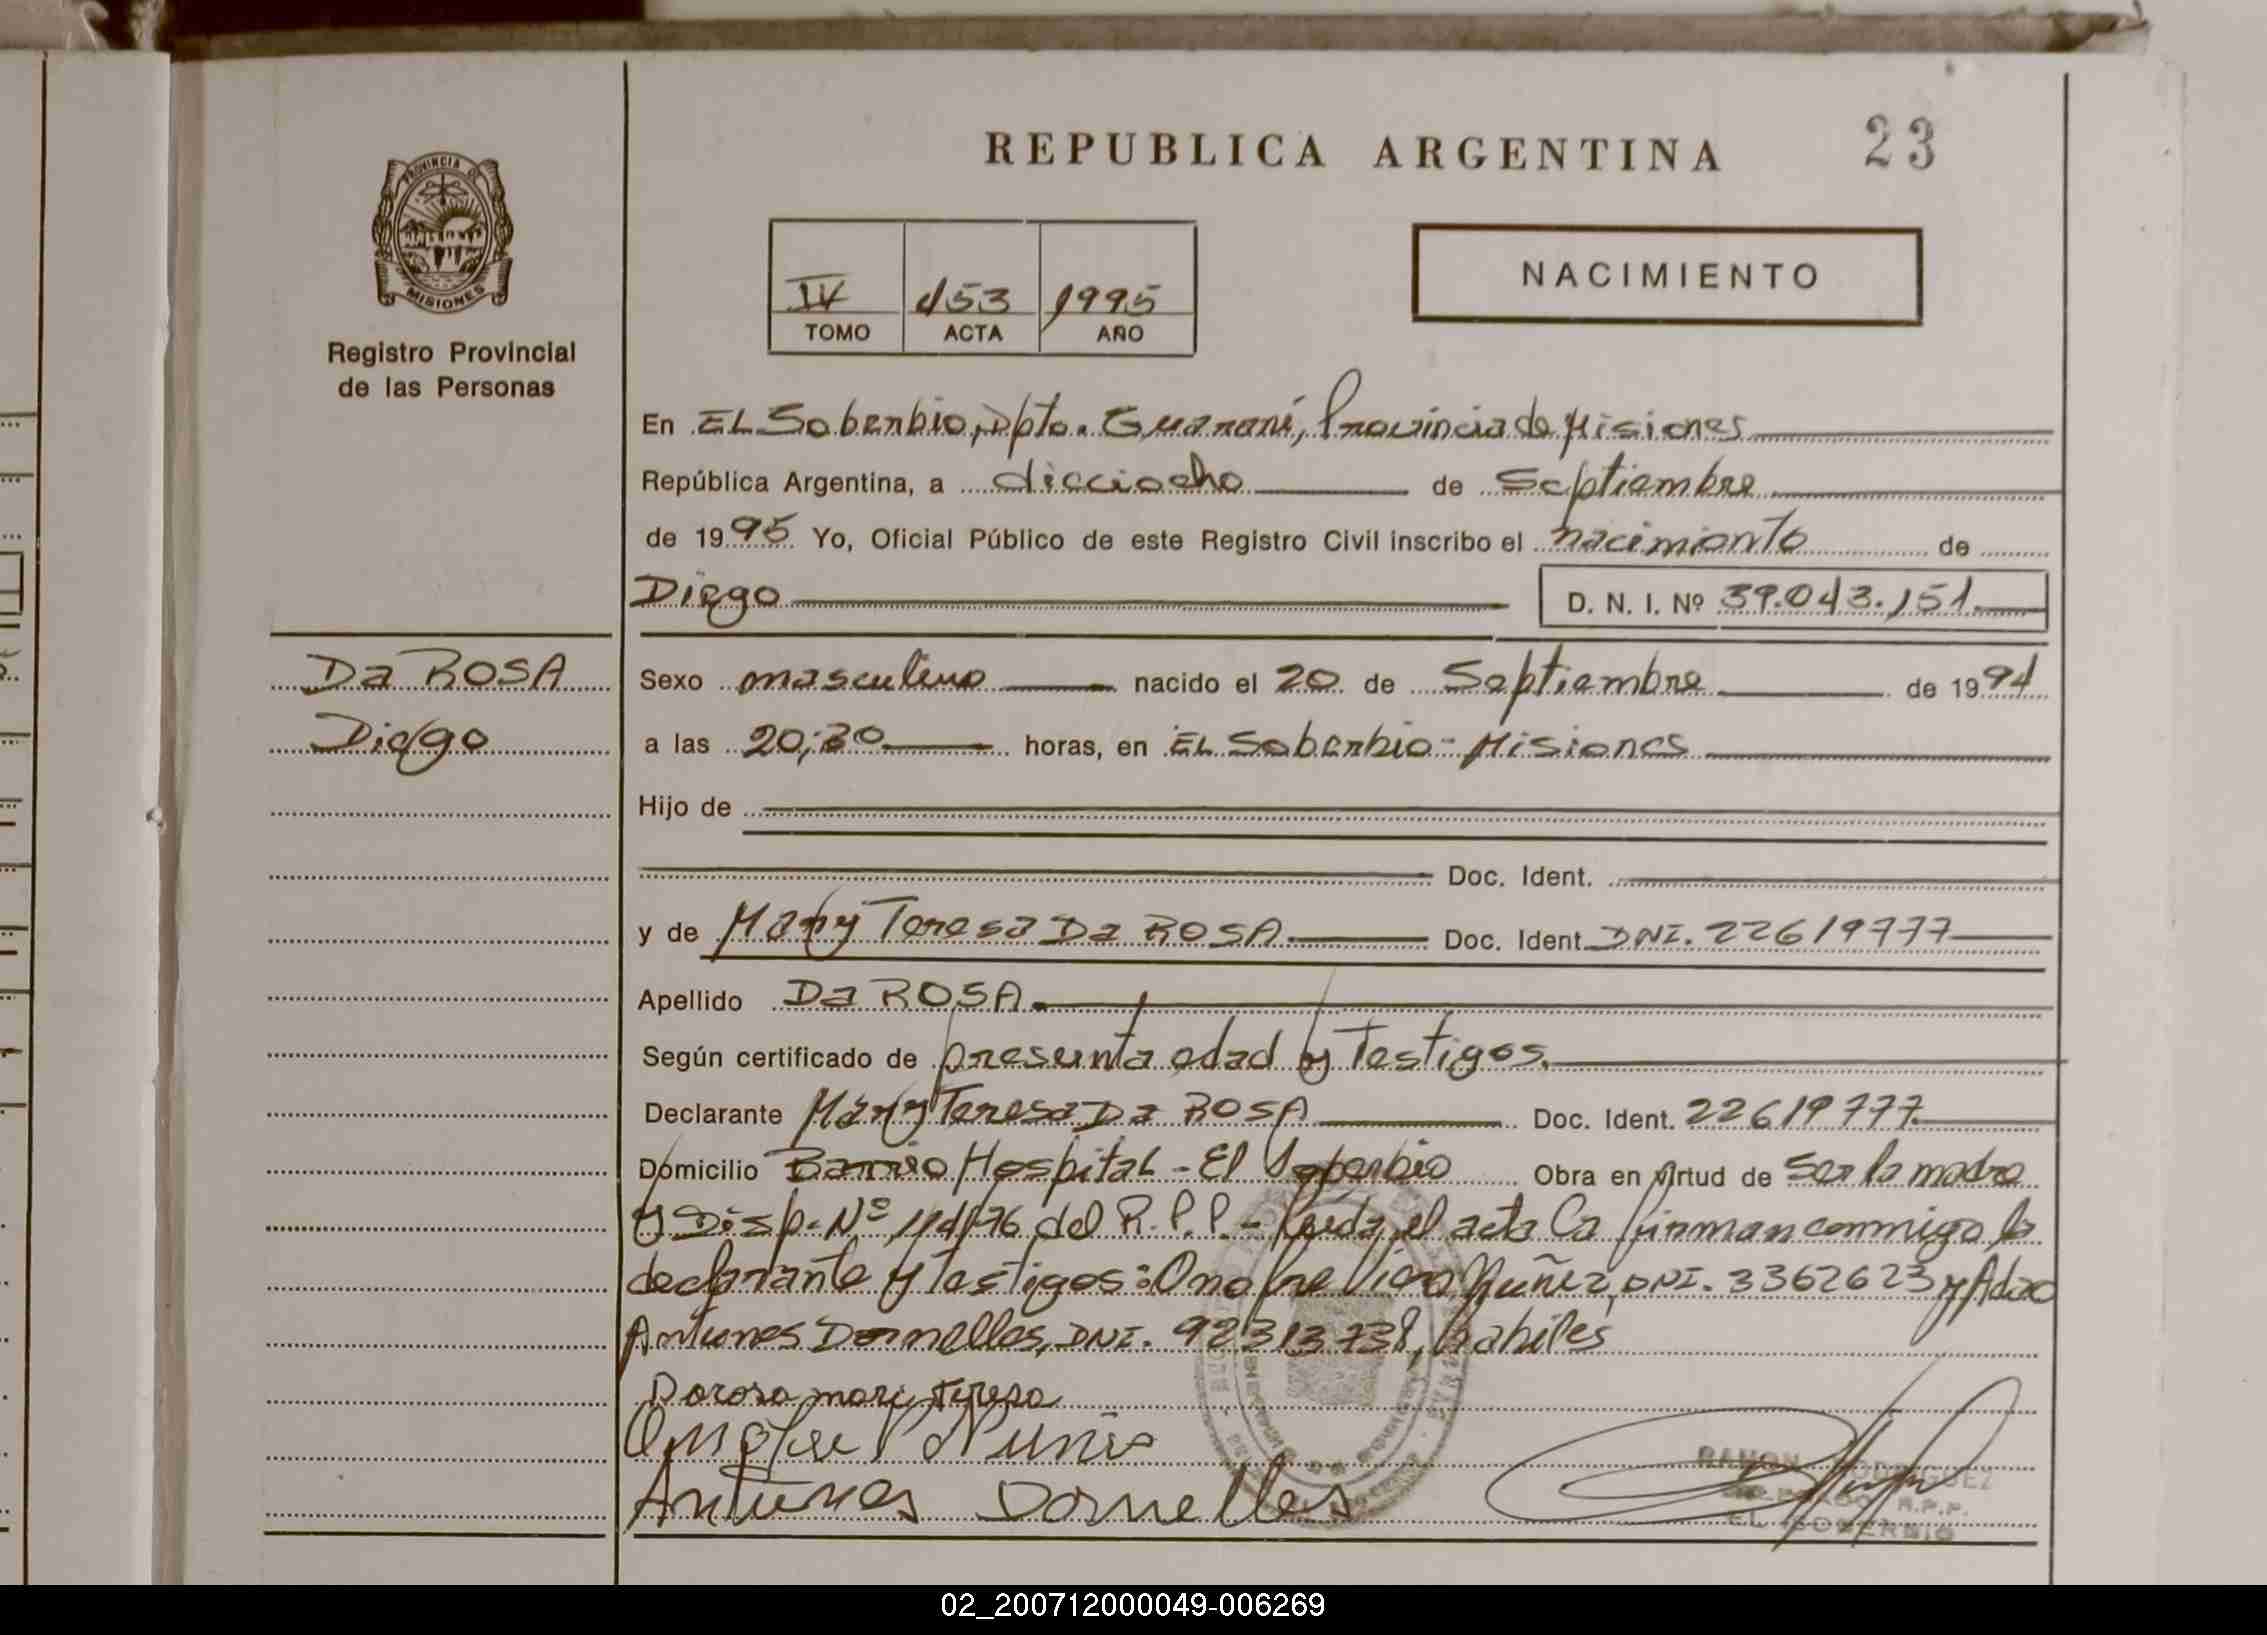 REPUBLICA ARGENTINA
23
PROVINCIA DE
MISIONES
Registro Provincial
de las Personas
NACIMIENTO
IV 453 1995
TOMO ACTA AÑO
En EL Soberbio, Dpto. Guaraní, Provincia de Misiones
República Argentina, a dieciocho de Septiembre
de 1995 Yo, Oficial Público de este Registro Civil inscribo el nacimiento de
Diego D. N. I. Nº 39.043.151.
Da ROSA
Diego
Sexo masculino nacido el 20 de Septiembre de 1994
a las 20,30 horas, en EL Soberbio - Misiones
Hijo de
Doc. Ident.
y de Mary Teresa Da ROSA Doc. Ident. DNI. 22619777
Apellido Da ROSA
Según certificado de presunta edad y Testigos.
Declarante Mary Teresa Da ROSA Doc. Ident. 22619777
Domicilio Barrio Hospital - El Soberbio Obra en virtud de Ser la madre
y Disp. Nº 114/76 del R.P.P. - Leida el acta La firman conmigo la
declarante y testigos: Onofre Viera Nuñez, DNI. 3362623 y Adao
Antunes Dornelles, DNI. 92313738, habiles
Darosa mary teresa
Onofre V Nunis
Antunes Dornelles
RAMON RODRIGUEZ
R.P.P.
EL SOBERBIO
02_200712000049-006269